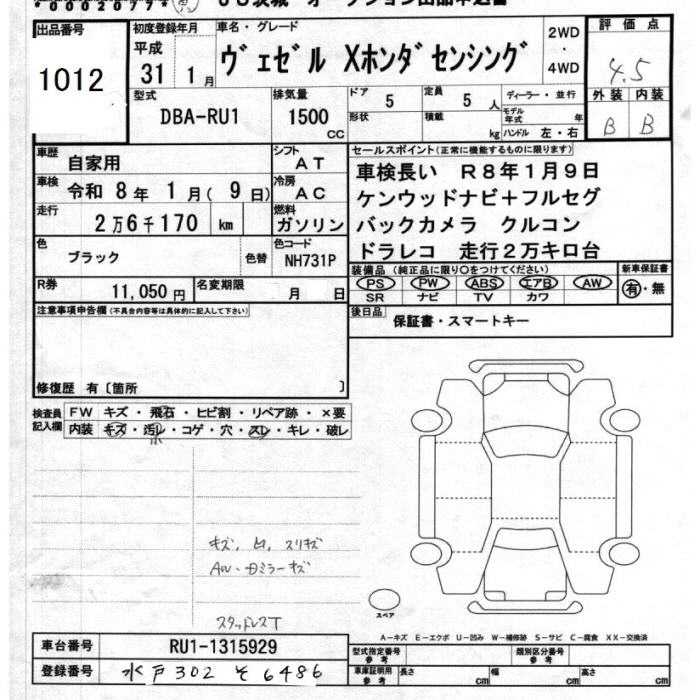 出品番号
1012
初度登録年月
平成
31 1月
車名・グレード
ヴェゼル Xホンダセンシング
2WD
・
4WD
評価点
4.5
外装 内装
B B
型式
DBA-RU1
排気量
1500
CC
ドア
5
形状
定員
5 人
積載
kg
ディーラー・並行
モデル年式 年
ハンドル 左・右
車歴
自家用
シフト
AT
車検
令和 8年 1月( 9日)
冷房
AC
走行
2万6千170 km
燃料
ガソリン
色
ブラック
色替
色コード
NH731P
R券
11,050円
名変期限
月 日
セールスポイント(正常に機能するものに限ります)
車検長い R8年1月9日
ケンウッドナビ+フルセグ
バックカメラ クルコン
ドラレコ 走行2万キロ台
装備品(純正品に限り○をつけてください)
新車保証書
PS PW ABS エアB AW
SR ナビ TV カワ
有・無
後日品
保証書・スマートキー
注意事項申告欄(不具合内容等は具体的に記入して下さい)
修復歴 有〔箇所 〕
検査員
記入欄
FW キズ・飛石・ヒビ割・リペア跡・×要
内装 キズ・汚レ・コゲ・穴・スレ・キレ・破レ
キズ、凹、スリキズ
AW・ミラーキズ
スタッドレスT
スペア
A-キズ E-エクボ U-凹み W-補修跡 S-サビ C-腐食 XX-交換済
車台番号
RU1-1315929
登録番号
水戸 302 そ 6486
型式指定番号
参考
類別区分番号
参考
車庫証明用
参考
長さ cm
幅 cm
高さ cm